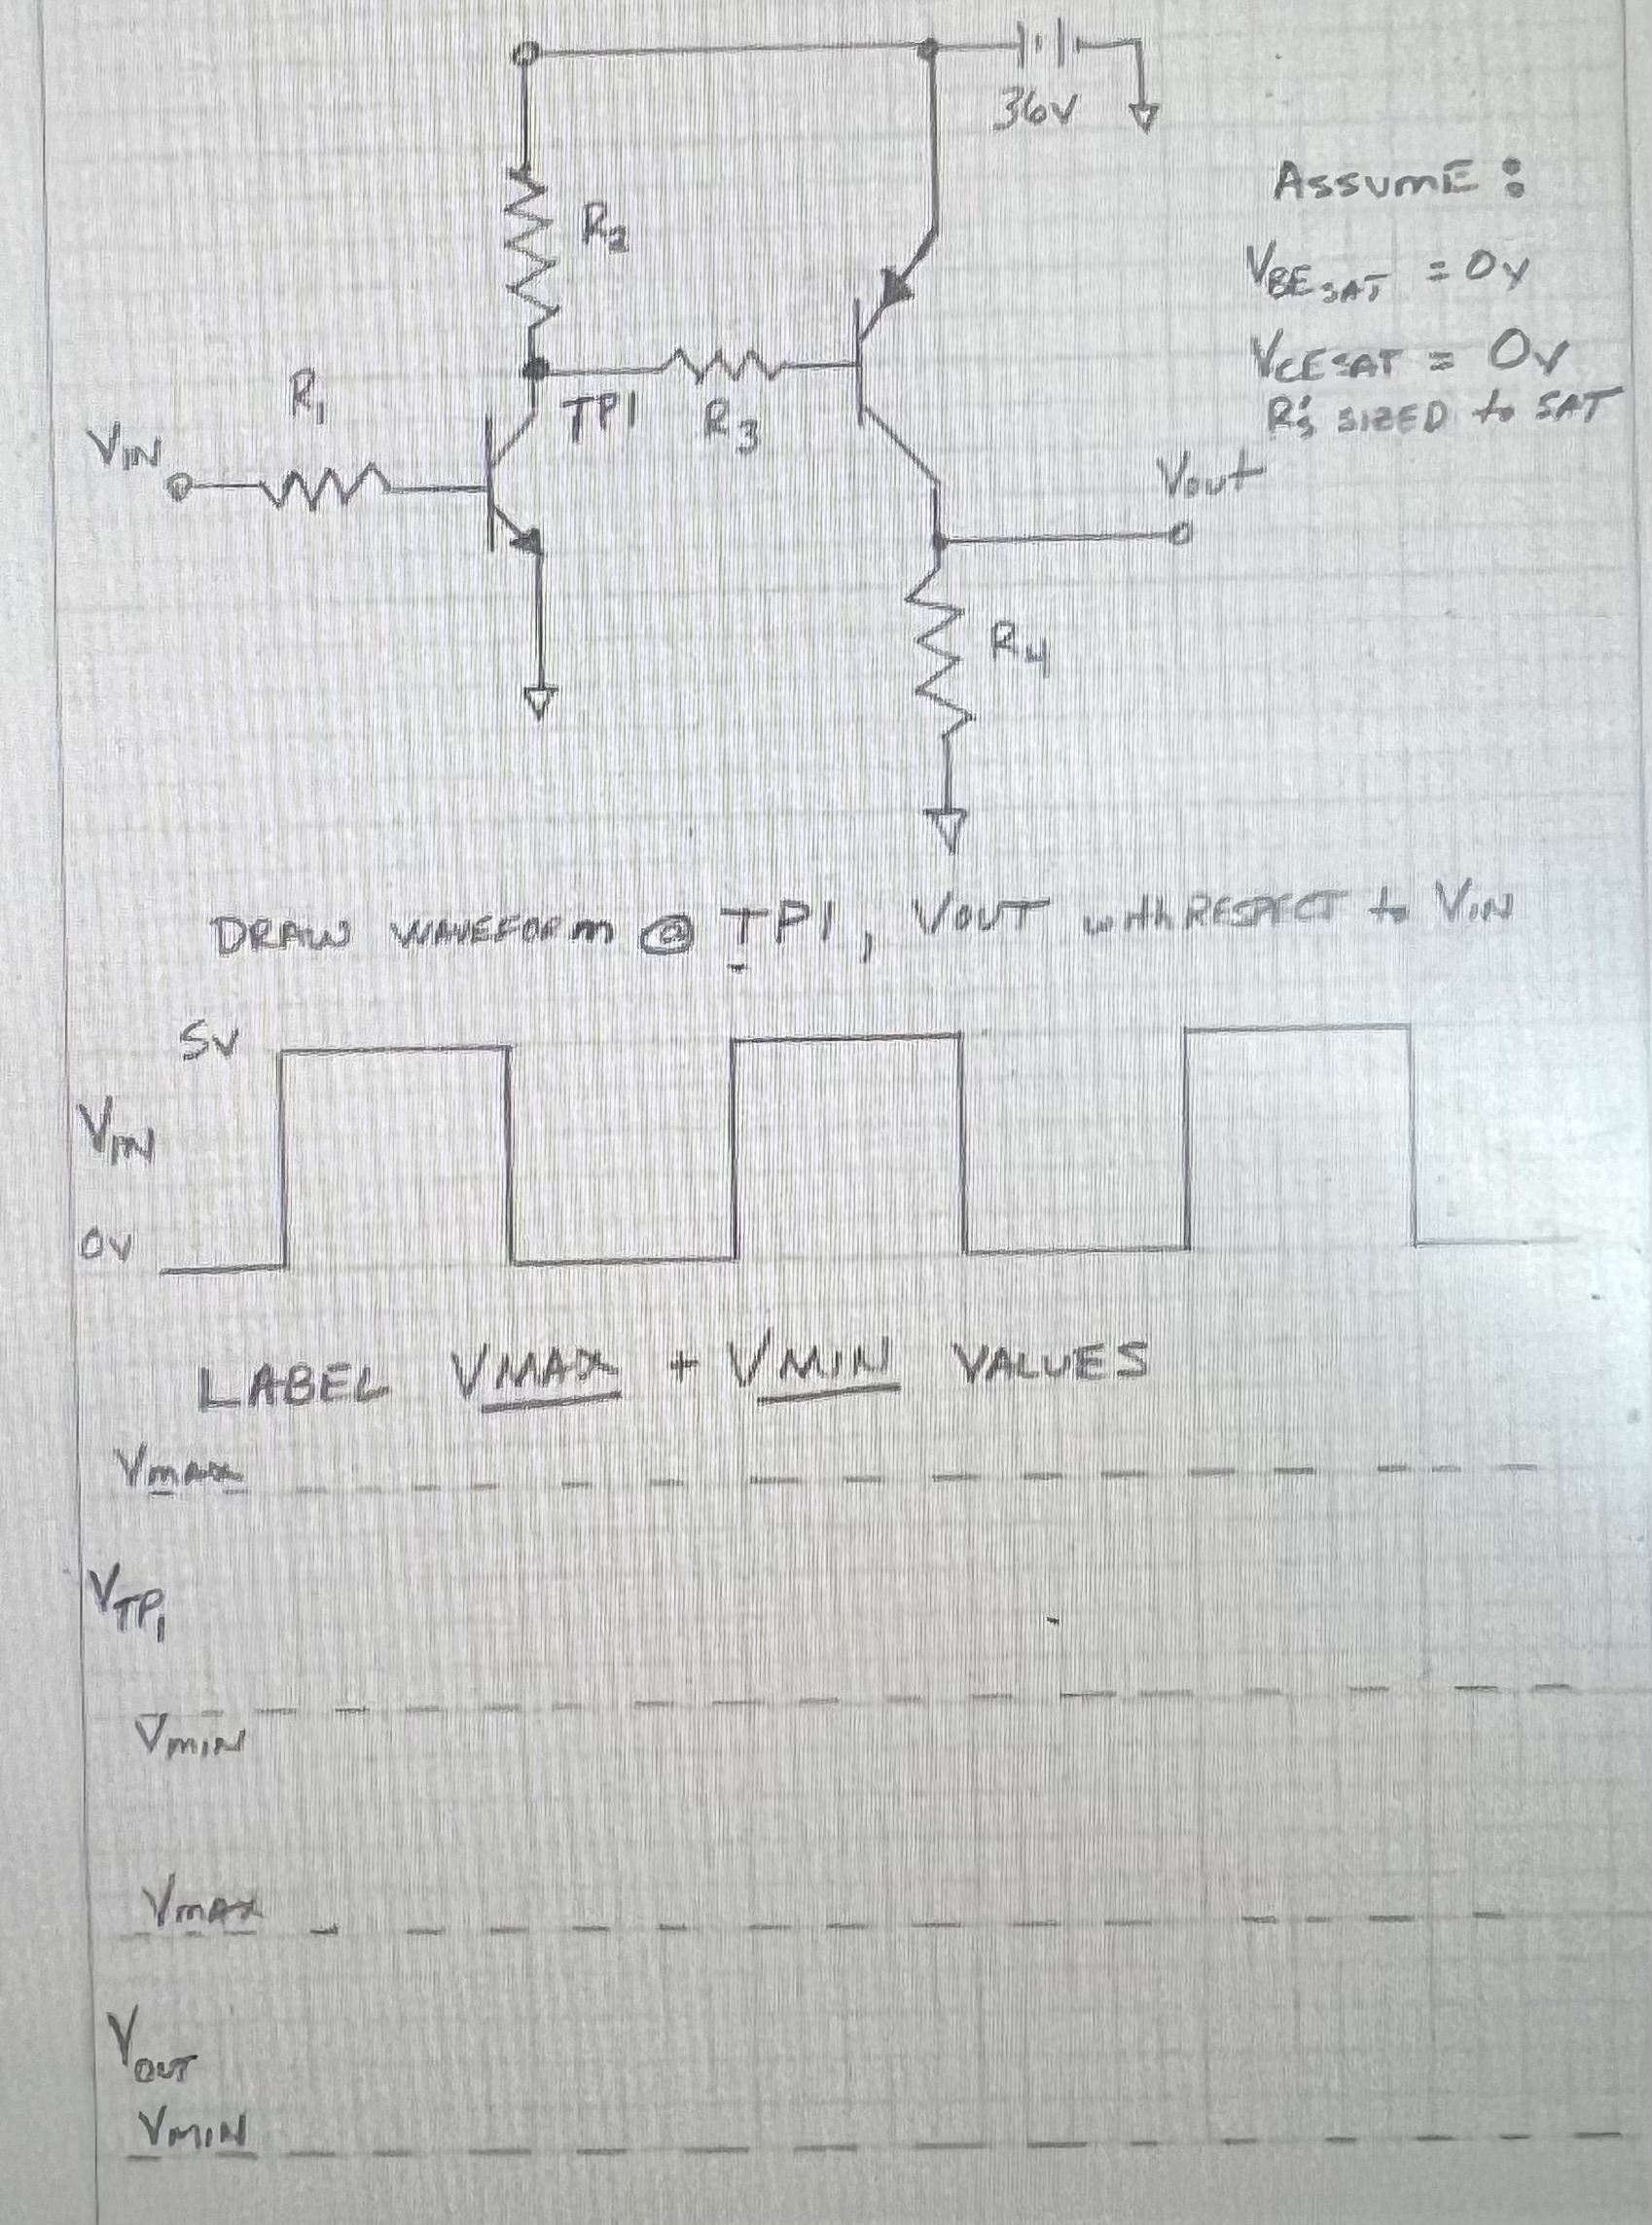 36V
ASSUME:
R2
VBE SAT = 0V
VCE SAT = 0V
R's SIZED to SAT
R1
TP1
R3
VIN
Vout
R4
DRAW WAVEFORM @ TP1, VOUT with RESPECT to VIN
5V
VIN
0V
LABEL VMAX + VMIN VALUES
Vmax
VTP1
Vmin
Vmax
VOUT
VMIN